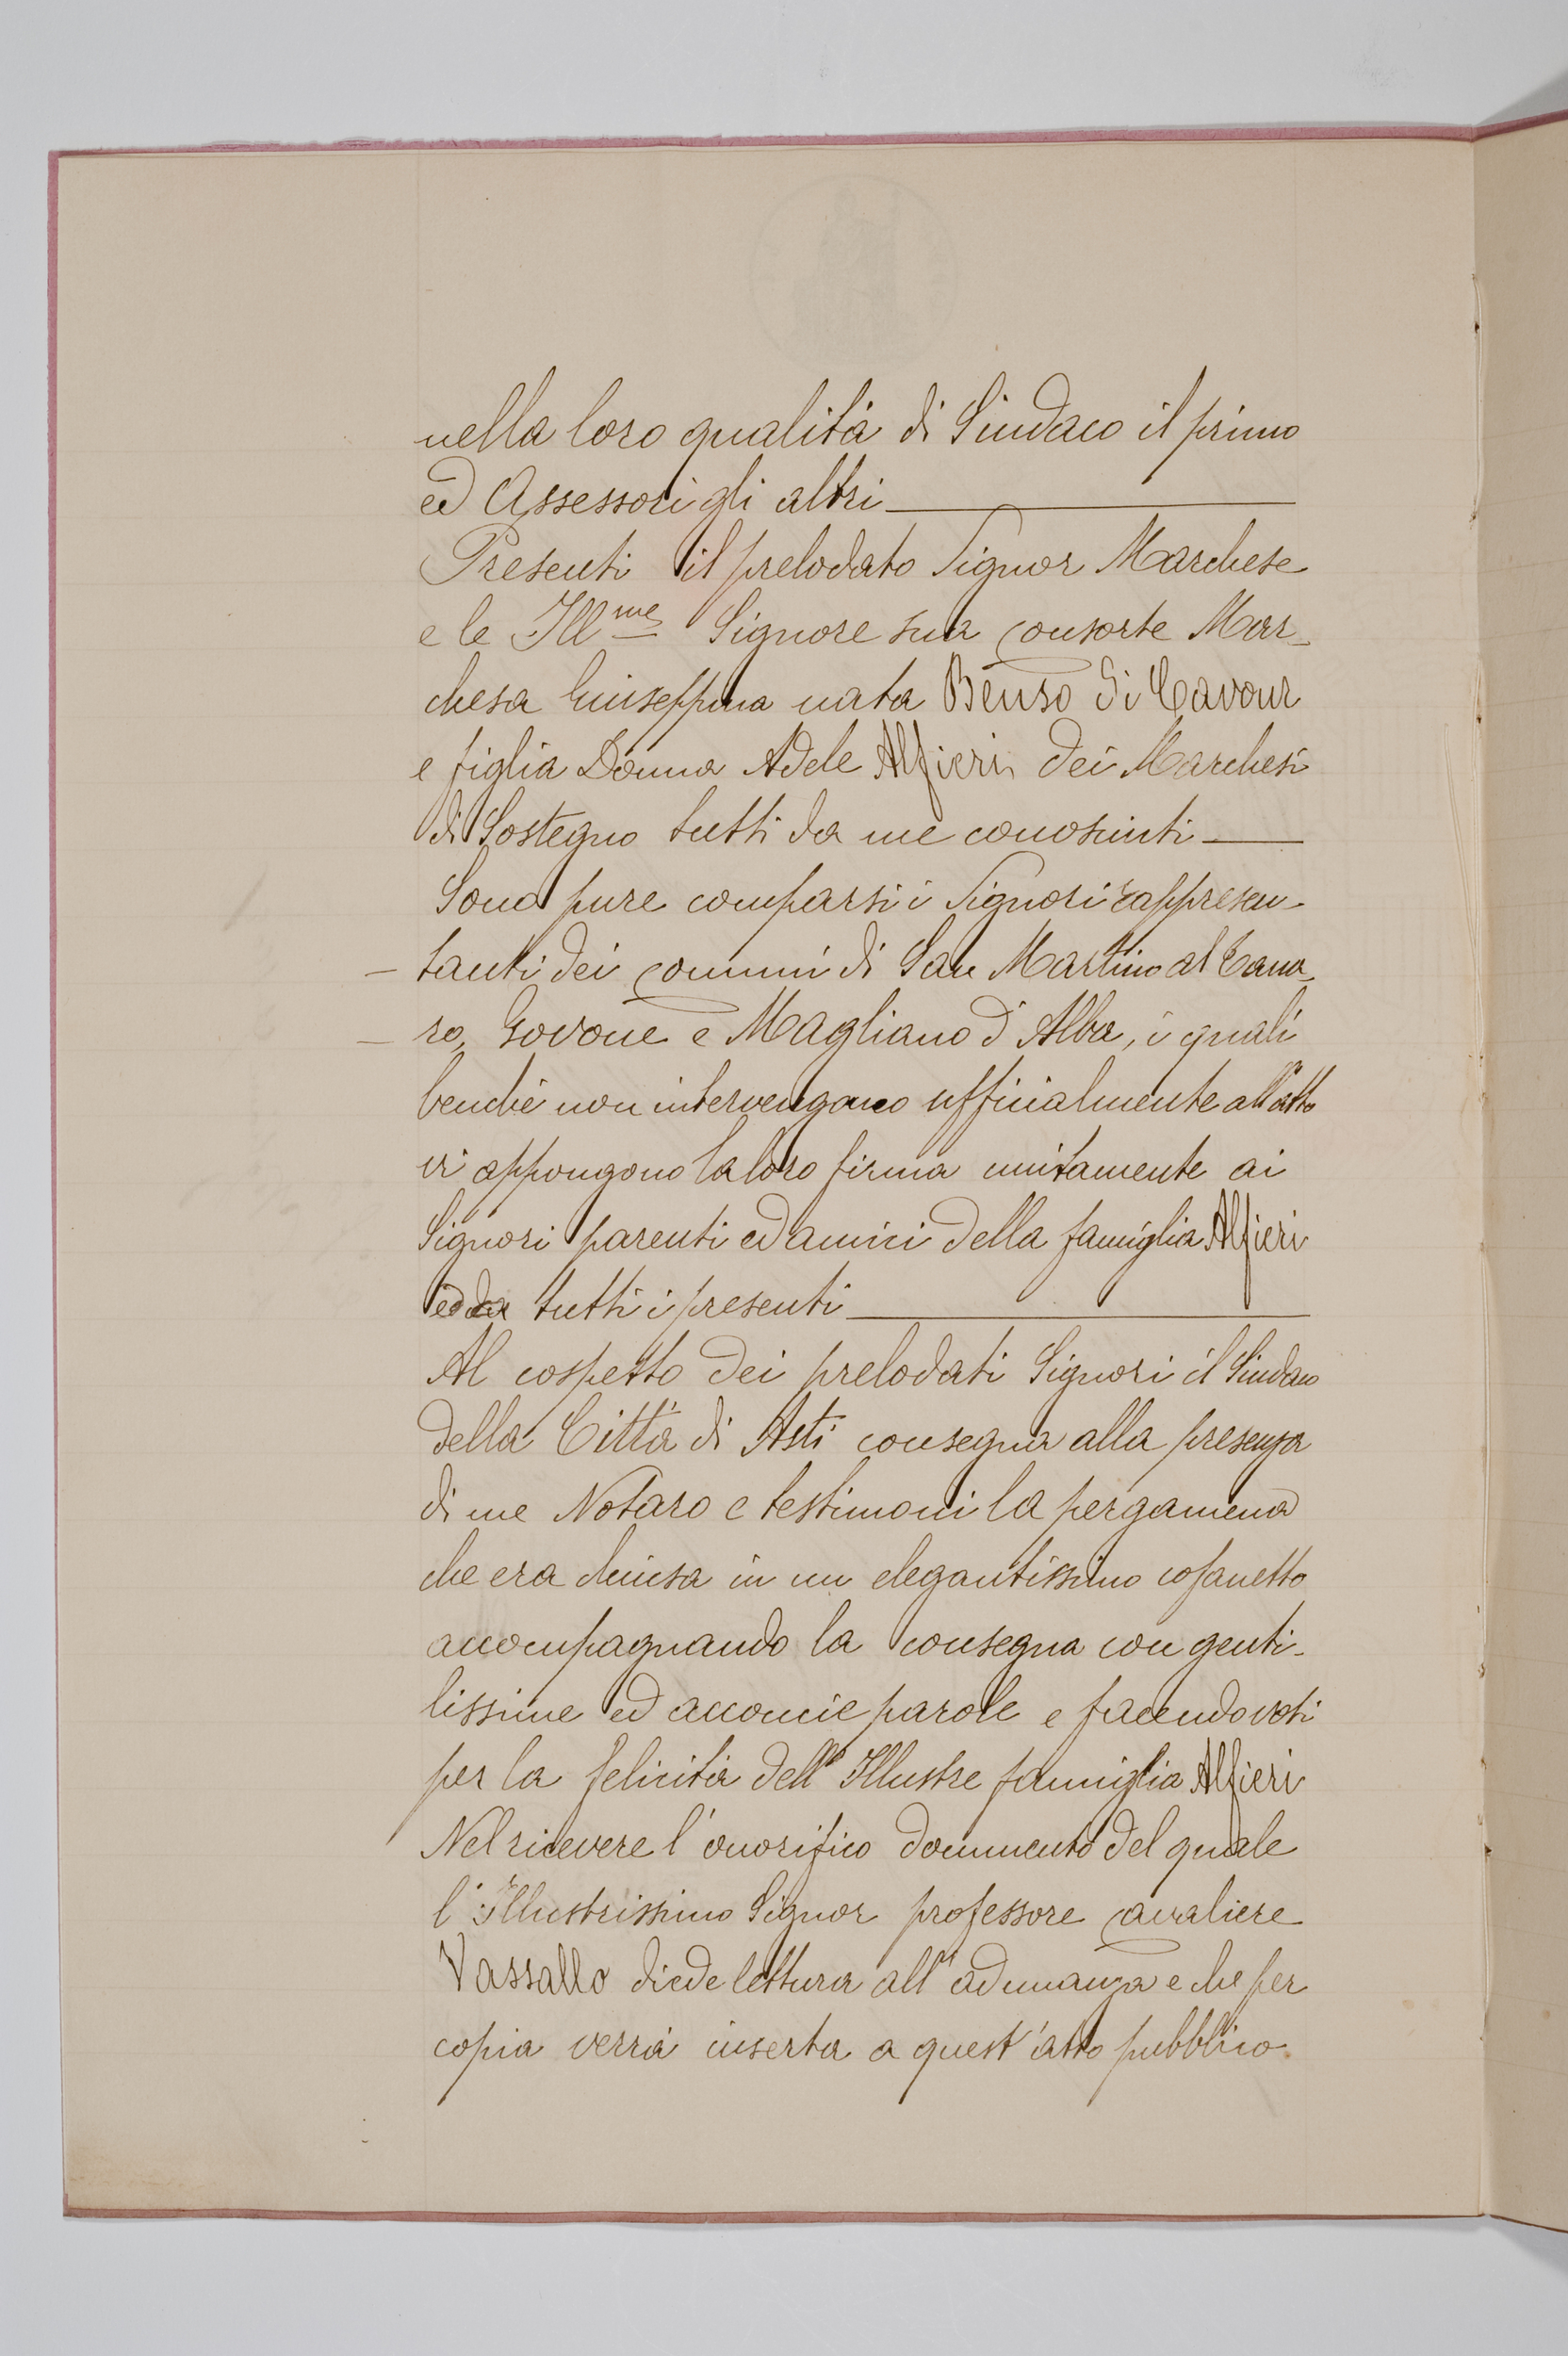 nella loro qualità di Sindaco il primo
ed Assessori gli altri
Presenti il prelodato Signor Marchese
e le Ill.me Signore sua consorte Mar-
chesa Giuseppina nata Benso di Cavour
e figlia Donna Adele Alfieri dei Marchesi
di Sostegno tutti da me conosciuti
Sono pure comparsi i Signori rappresen-
tanti dei comuni di San Martino al Tana-
ro, Govone e Magliano d'Alba, i quali
benché non intervengano ufficialmente all'atto
vi appongono la loro firma unitamente ai
Signori parenti ed amici della famiglia Alfieri
ed a tutti i presenti
Al cospetto dei prelodati Signori il Sindaco
della Città di Asti consegna alla presenza
di me Notaro e testimoni la pergamena
che era chiusa in un elegantissimo cofanetto
accompagnando la consegna con genti-
lissime ed acconcie parole e facendo voti
per la felicità dell'Illustre famiglia Alfieri
Nel ricevere l'onorifico documento del quale
l'Illustrissimo Signor professore cavaliere
Vassallo diede lettura all'adunanza e che per
copia verrà inserta a quest'atto pubblico.